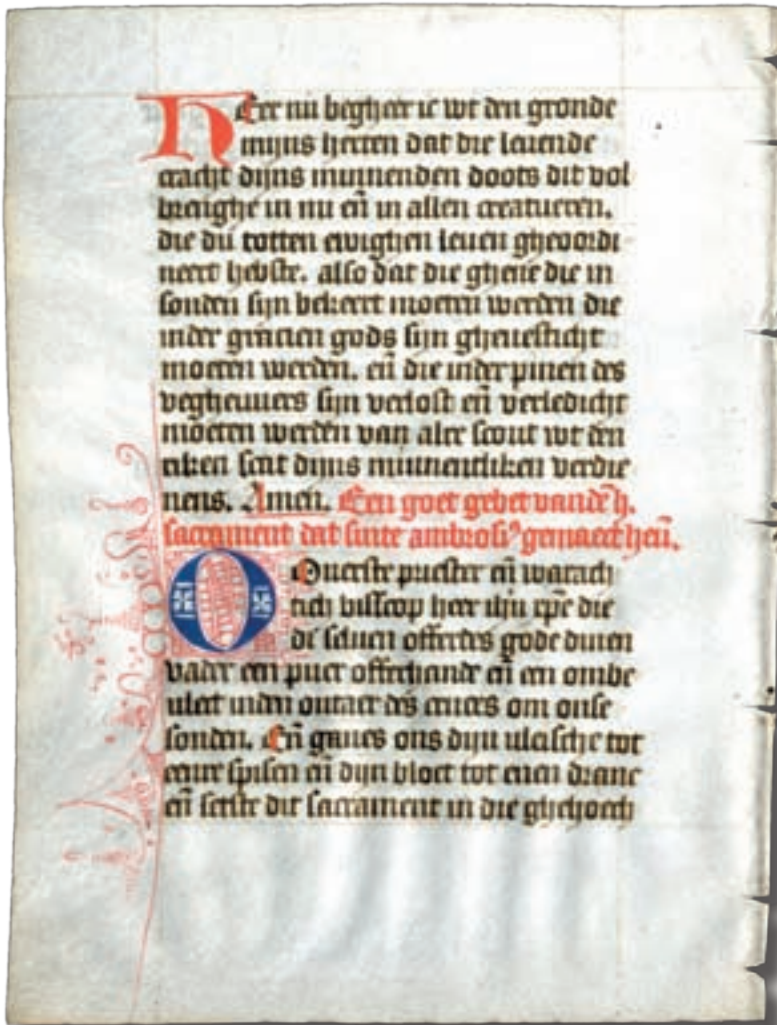 HEer nu begheer ic wt den gronde
mijns herten dat die leuende
cracht dijns minnenden doots dit vol
brenghe in mi en̄ in allen creatueren.
die du totten ewighen leuen gheordi
neert hebste. also dat die ghene die in
sonden sijn bekeert moeten werden die
inder gracien gods sijn gheuesticht
moeten werden. en̄ die inder pinen des
vegheuuers sijn verlost en̄ verledicht
moeten werden van alre scout wt den
riken scat dijns minnentliken verdie
nens. Amen. Een goet gebet vandē h.
sacrament dat sinte ambrosiꝰ gemaect heū.
OOuerste priester en̄ warach
tich bisscop heer ihu xpē die
di seluen offerdes gode dinen
vader een puer offerhande en̄ een ombe
ulect inden outaer des cruces om onse
sonden. En̄ gaues ons dijn uleische tot
eenre spisen en̄ dijn bloet tot enen dranc
en̄ settste dit sacrament in die ghehoech